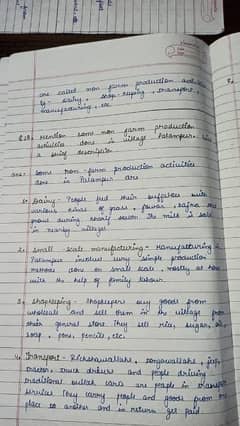 are called non farm production
eg- dairy, shop-keeping, transport,
manufacturing, etc.
Mention some non farm production
activities done in village Palampur.
a brief description
Ans: Some non-farm production activities
done in Palampur are
1. Dairy- People feed their buffaloes with
various kinds of grass, jowar, bajra
grows during rainy season. The milk is sold
in nearby village
2. Small-scale manufacturing- Manufacturing in
Palampur involve very simple production
methods done on small scale, mostly at home
with the help of family labour.
3. Shopkeeping- shopkeepers buy goods from
wholesale and sell them in the village from
their general store. They sell rice, sugar, oil,
soap, pens, pencils, etc.
4. Transport- Rickshawallahs, tongawallahs, jeep,
tractor, truck drivers and people driving
traditional bullock carts are people in transport
services They carry people and goods from one
place to another and in return get paid